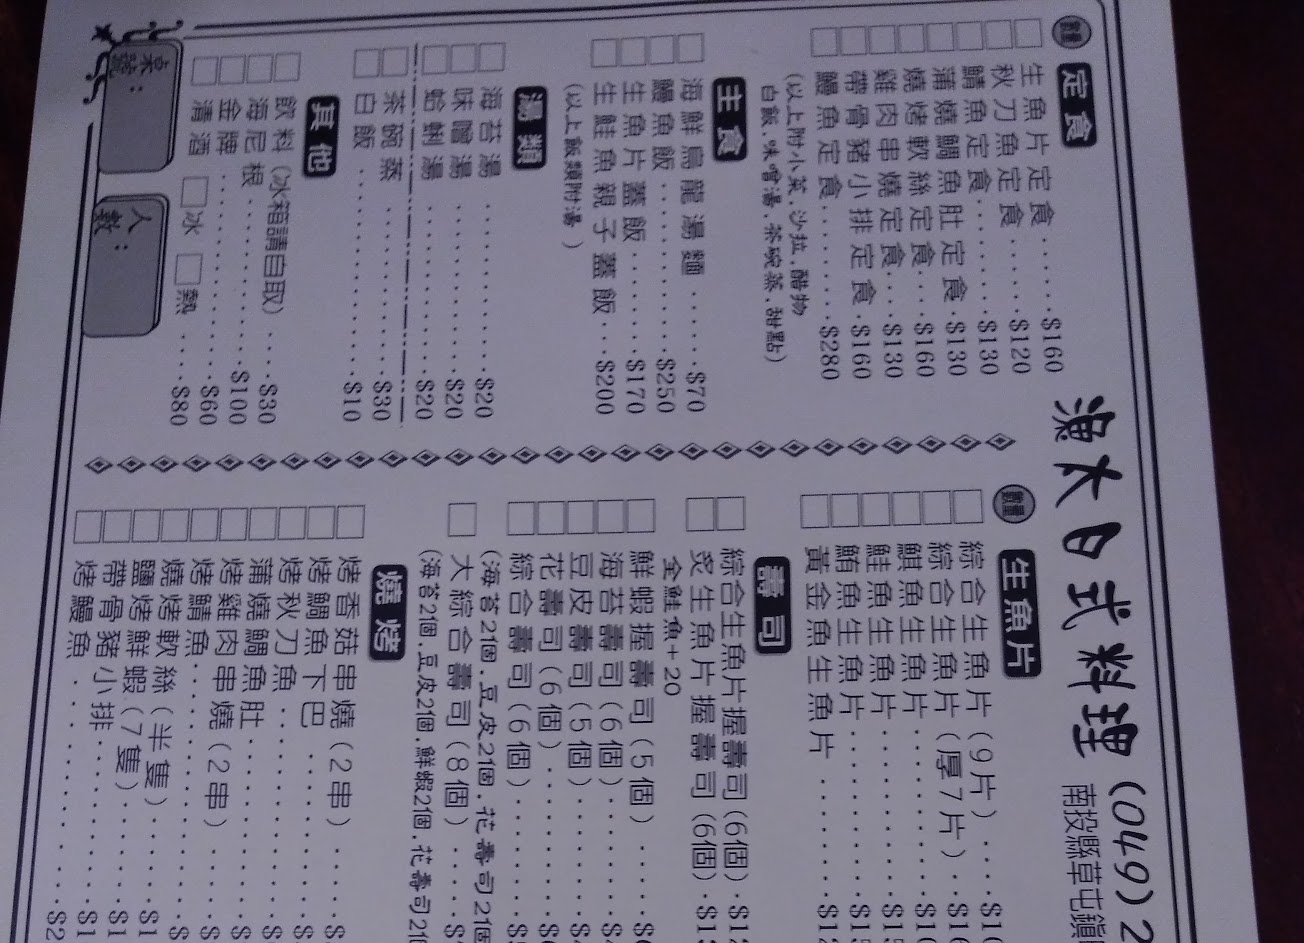 漁太日式料理 (049)2
南投縣草屯鎮
數量 定食
生魚片定食 $160
秋刀魚定食 $120
鯖魚定食 $130
蒲燒鯛魚肚定食 $130
燒烤軟絲定食 $160
雞肉串燒定食 $130
帶骨豬小排定食 $160
鰻魚定食 $280
(以上附小菜.沙拉.醋物
白飯.味噌湯.茶碗蒸.甜點)
主食
海鮮烏龍湯麵 $70
鰻魚飯 $250
生魚片蓋飯 $170
生鮭魚親子蓋飯 $200
(以上飯類附湯)
湯類
海苔湯 $20
味噌湯 $20
蛤蜊湯 $20
茶碗蒸 $30
白飯 $10
其他
飲料(冰箱請自取) $30
海尼根 $100
金牌 $60
清酒 冰 熱 $80
桌號:
人數:
數量 生魚片
綜合生魚片(9片) $1
綜合生魚片(厚7片) $1
旗魚生魚片 $1
鮭魚生魚片 $1
鮪魚生魚片 $1
黃金魚生魚片 $1
壽司
綜合生魚片握壽司(6個) $1
炙生魚片握壽司(6個) $1
全鮭魚+20
鮮蝦握壽司(5個)
海苔壽司(6個)
豆皮壽司(5個)
花壽司(6個)
綜合壽司(6個)
(海苔2個.豆皮2個.花壽司2個
大綜合壽司(8個)
(海苔2個.豆皮2個.鮮蝦2個.花壽司2個
燒烤
烤香菇串燒(2串)
烤鯛魚下巴
烤秋刀魚
蒲燒鯛魚肚
烤雞肉串燒(2串)
烤鯖魚
燒烤軟絲(半隻)
鹽烤鮮蝦(7隻) $1
帶骨豬小排 $1
烤鰻魚 $2